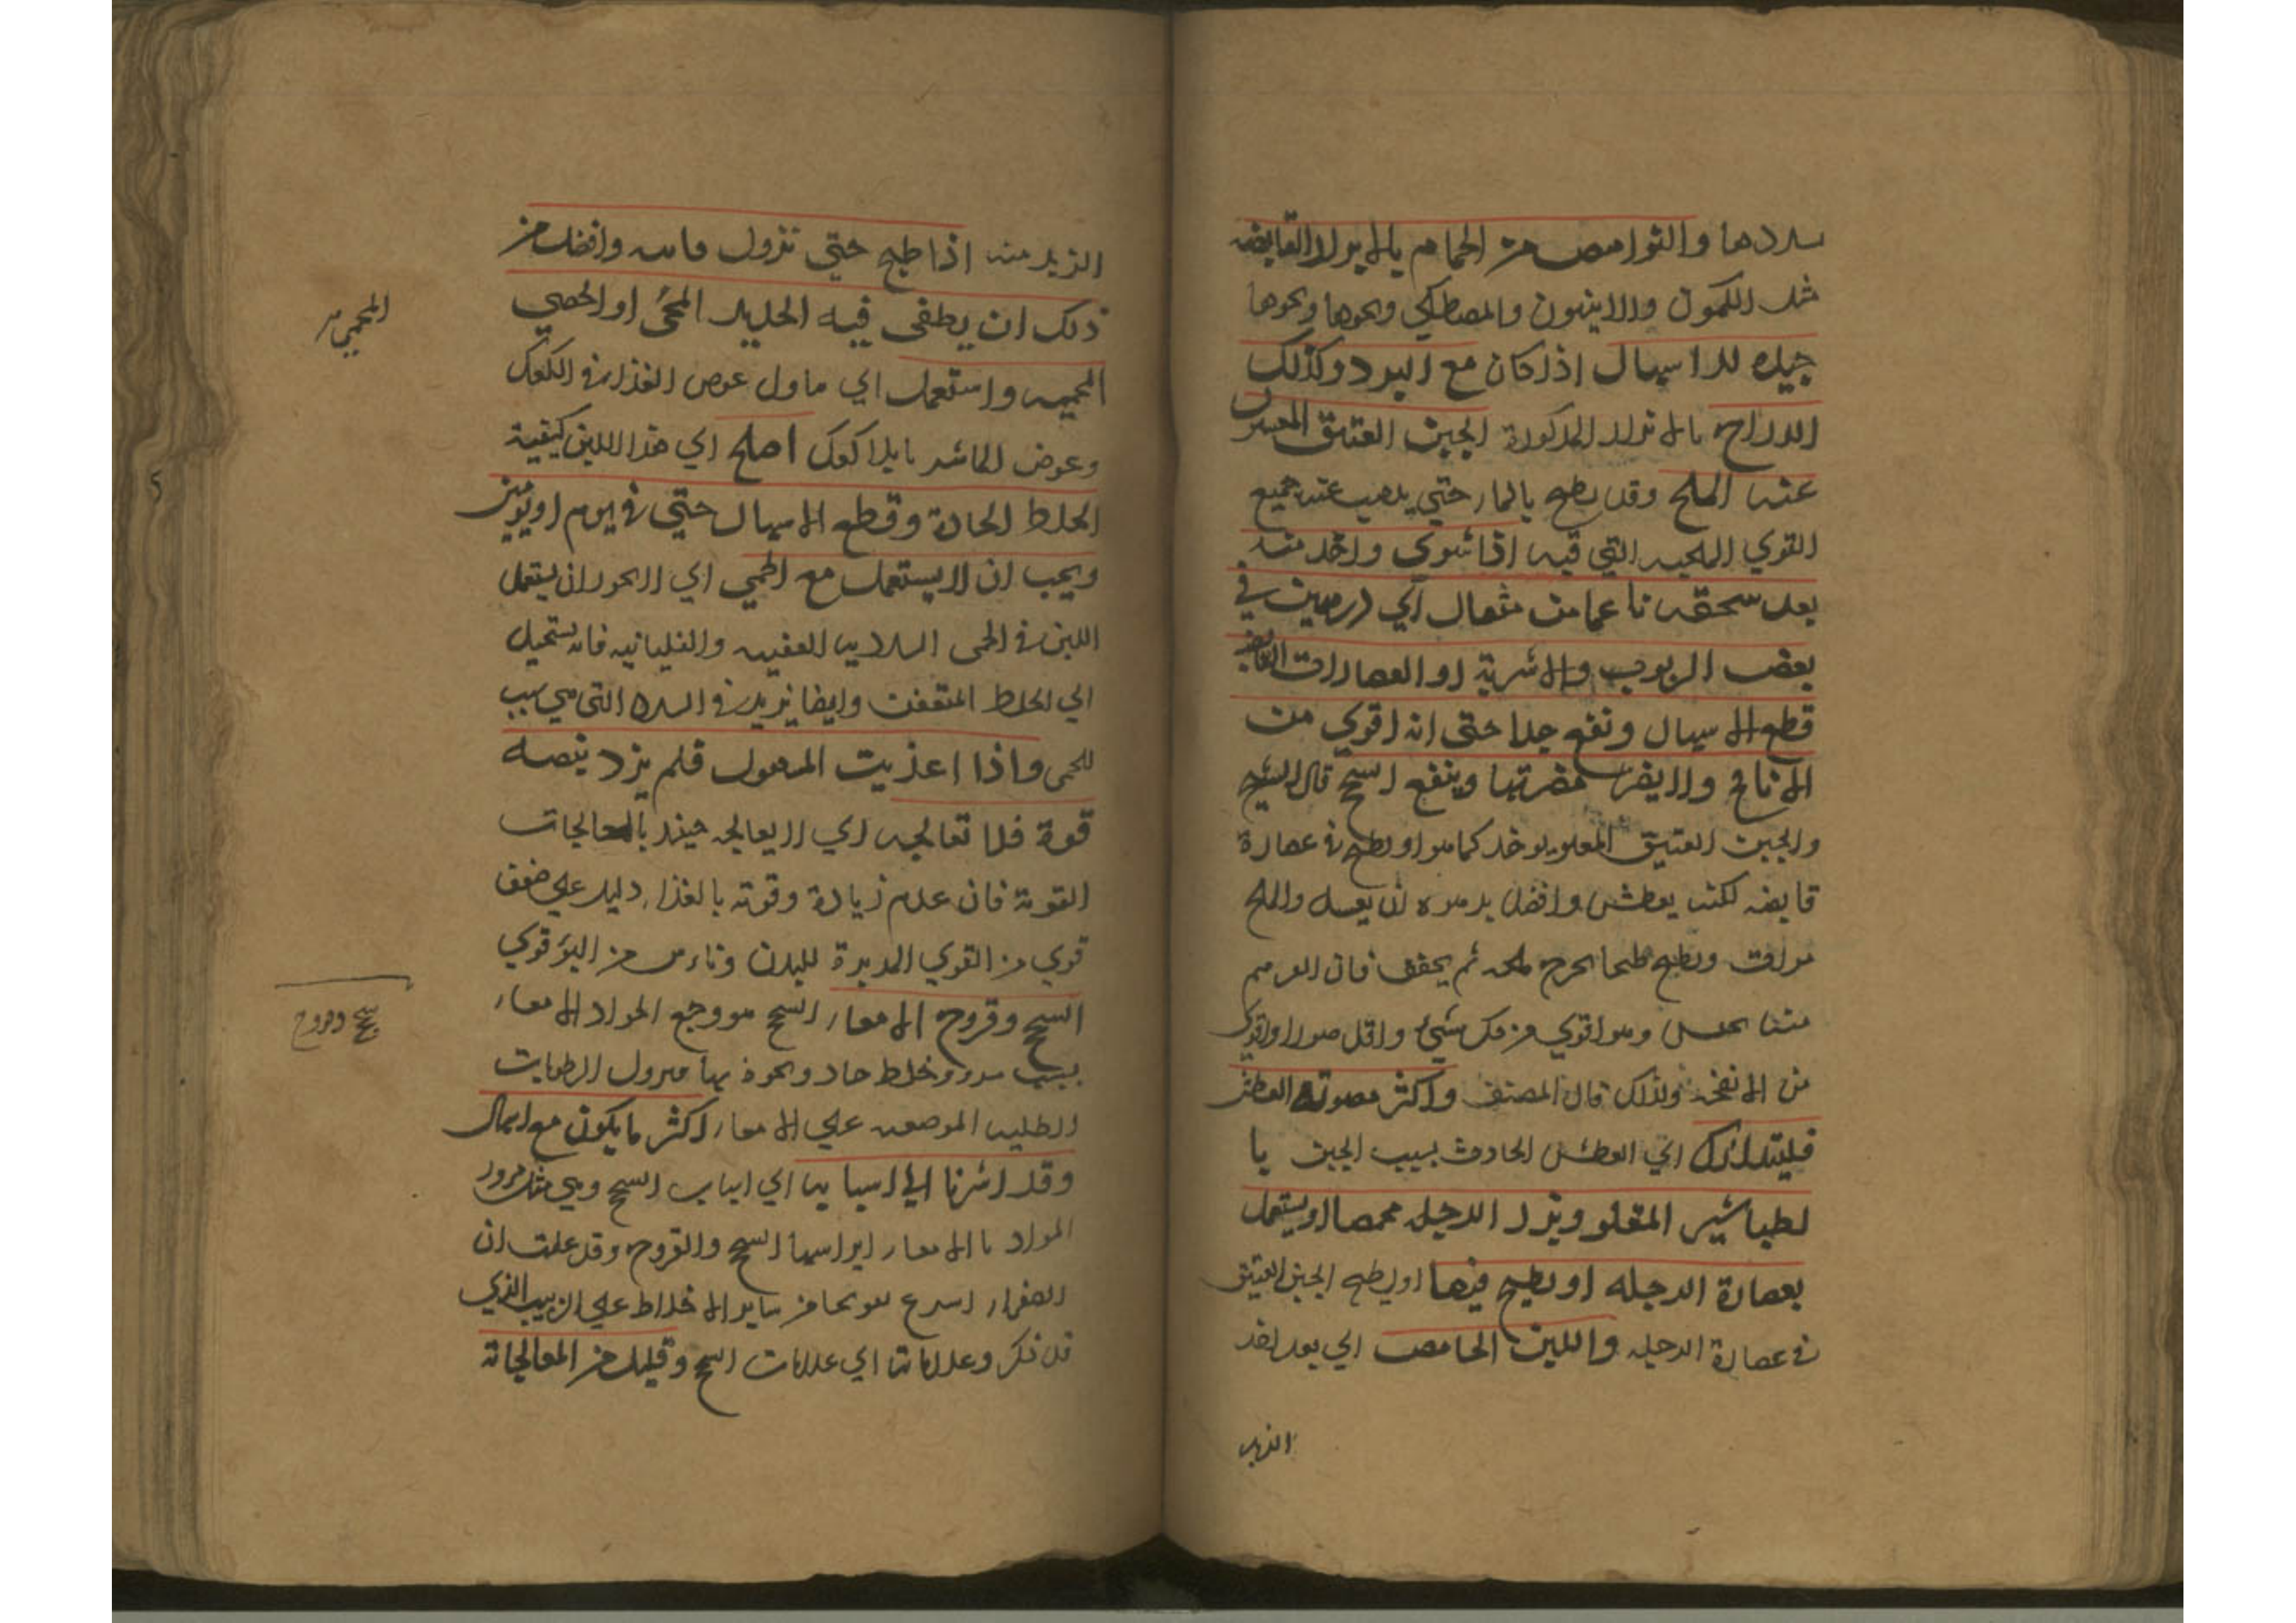 والنوامص من الحمام بالابزار القابضه
مثل الكمون والانيسون والمصطكي ونحوها ونحوها
جيده للاسهال اذا كان مع البرد وكذلك
الدراج بالابزار المذكورة الجبن العتيق المغسول
عنه الملح وقد يطبخ بالماء حتي يذهب عنه جميع
القوي الملحيه التي فيه اذا شوي واخذ منه
بعد سحقه ناعما من مثقال الي درهمين في
بعض الربوب والاشربة او العصارات القابضه
قطع الاسهال ونفع جدا حتى انه اقوي من
الانافح ولا يضر مضرتها وينفع السحج قال الشيخ
والجبن العتيق المقلو يوخذ كما هو او يطبخ في عصارة
قابضه لكنه يعطش وافضل تدبيره ان يغسل والملح
مرات ويطبخ طبخا يخرج ملحه ثم يجفف فان الدرهم
منها يحبس وهو اقوي من كل شيء واقل ضررا واقوي
من الانفحه ولذلك قال المصنف واكثر مضرته العطش
فليتدارك اي العطش الحادث بسبب الجبن با
لطباشير المقلو وبزر الرجله محمصا او يستعمل
بعصارة الرجله او يطبخ فيها او يطبخ الجبن العتيق
في عصارة الرجله واللبن الحامض اي بعد اخذ
الزبد
الزبد منه اذا طبخ حتى تزول مائيته وافضل من
ذلك ان يطفى فيه الحديد المحمى او الحصي
المحميه واستعمل اي ماول عوض الغذاء في الكعك
وعوض الماء بلا كعك اصلح اي هذا اللبن كيفية
الخلط الحادة وقطع الاسهال حتي في يوم او يومين
ويجب ان لا يستعمل مع الحمي اي لا يجوز ان يستعمل
اللبن في الحمى العفنيه والغليانيه فانه يستحيل
الي الخلط المتعفن وايضا يزيد في السدد التي هي سبب
للحمى واذا اغذيت المسهول فلم يزد نبضه
قوة فلا تعالجه اي لا يعالجه حينئذ بالمعالجات
القوية فان عدم زيادة وقوته بالغذاء دليل علي ضعف
قوي من القوي المدبرة للبدن وتايس من البرؤ قوي
السحج وقروح الامعاء السحج هو وجع المواد الامعاء
بسبب مرور خلط حاد ونحوه بها فيزول الرطوبات
الطليه الموضعه علي الامعاء اكثر ما يكون مع اسهال
وقد اشرنا الي اسبابها اي اسباب السحج وهي مثل مرور
المواد بالامعاء السحج والقروح وقد علمت ان
الصفراء اسرع من ساير الاخلاط علي الترتيب الذي
قد ذكر وعلاماتها اي علامات السحج وقليل من المعالجاته
المحمي
سحج وقروح